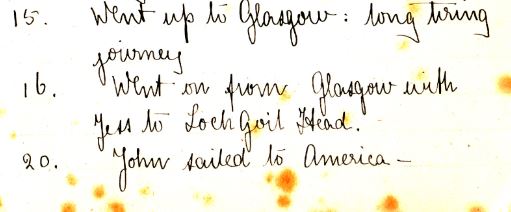 15. Went up to Glasgow: long tiring
journey
16. Went on from Glasgow with
Jess to Loch Goil Head.
20. John sailed to America –